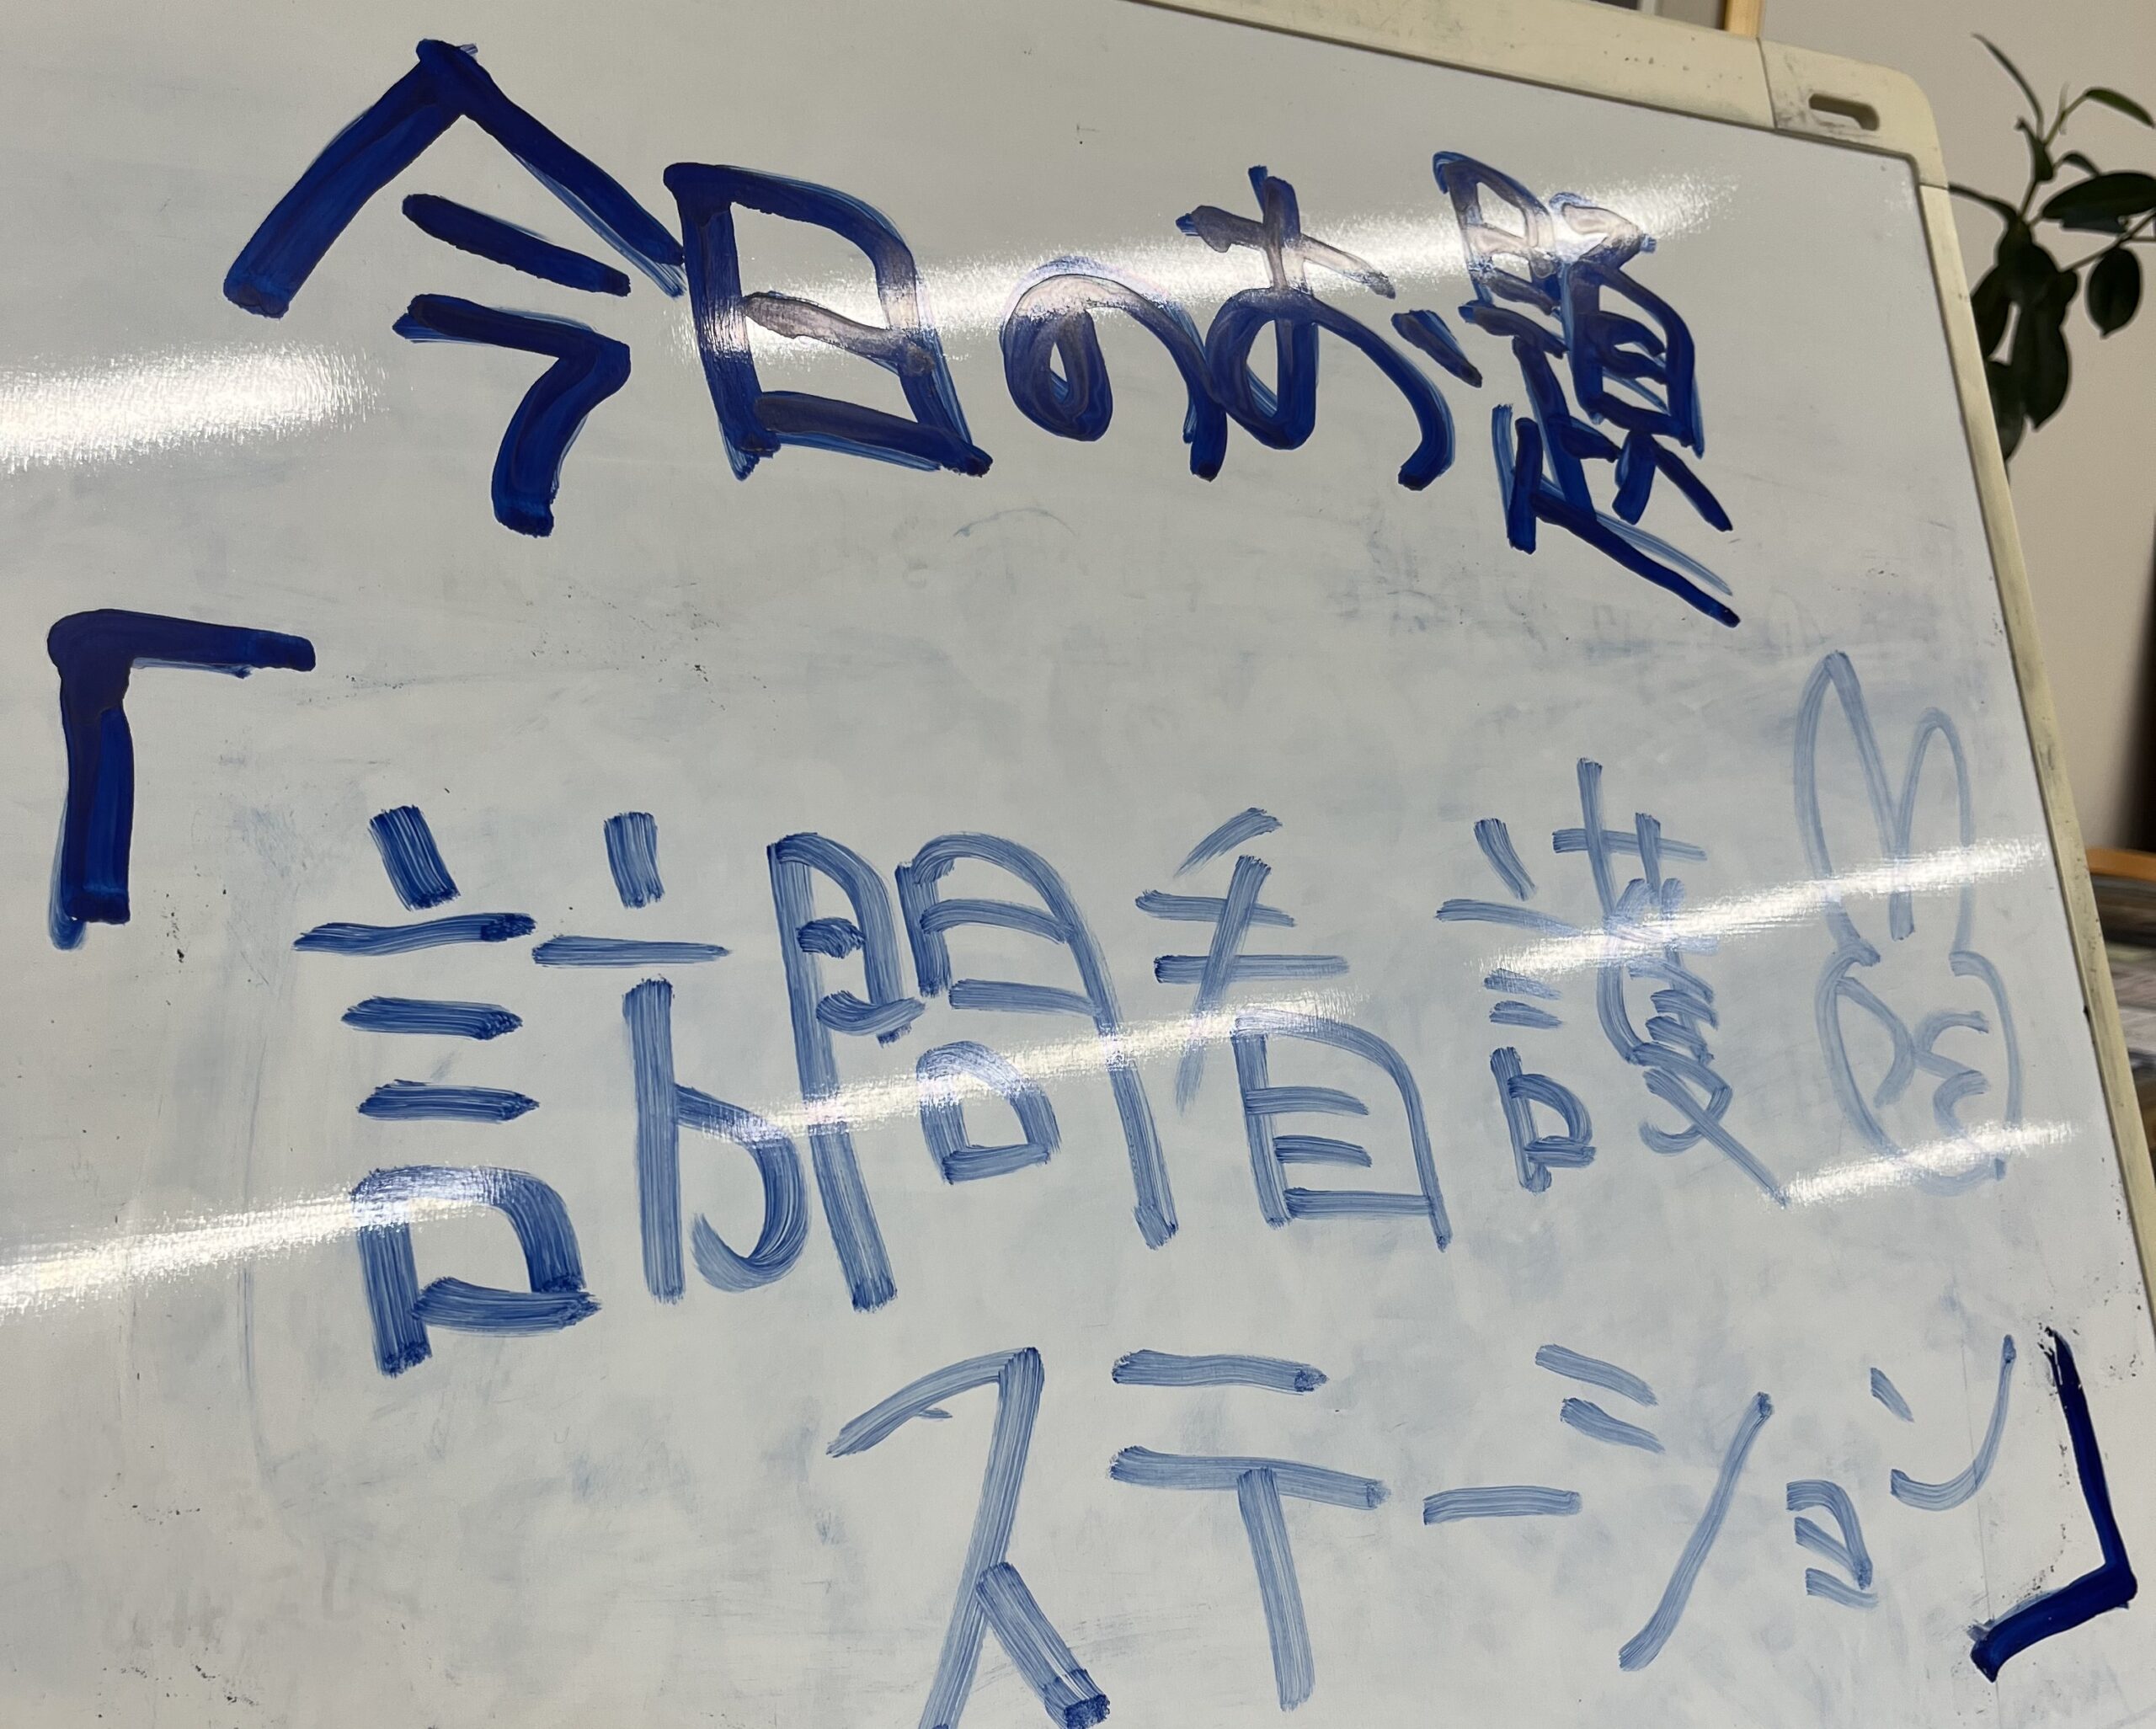 今日のお題
「訪問看護
ステーション」